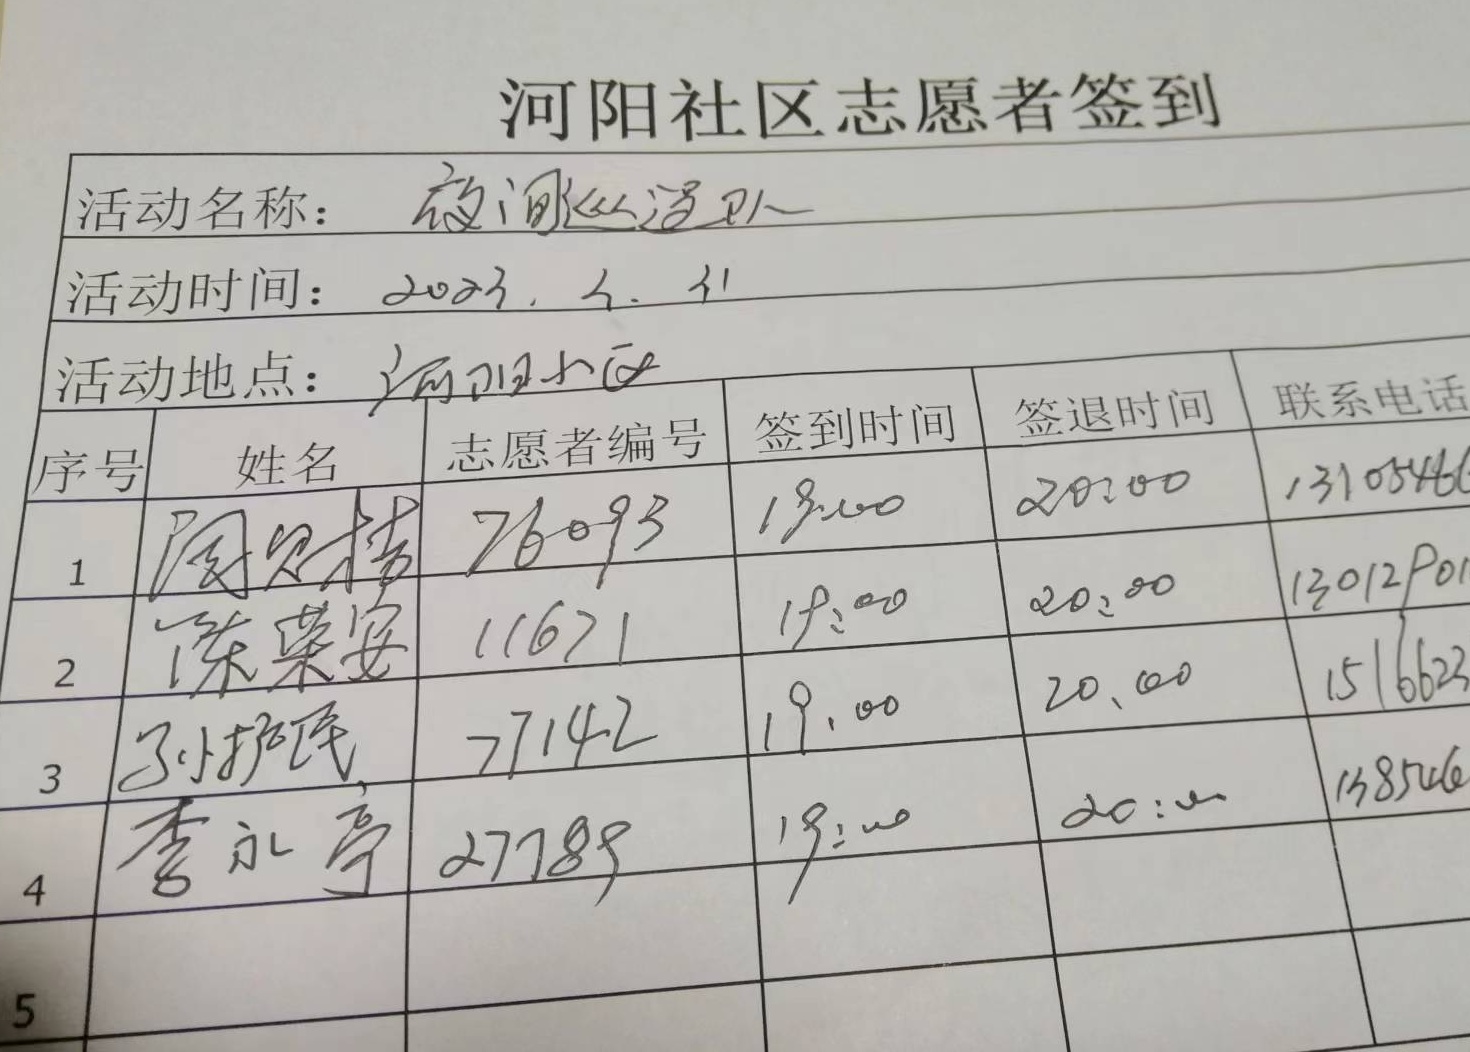 河阳社区志愿者签到
活动名称： 夜间巡逻队
活动时间： 2023. 3. 31
活动地点： 河阳小区
序号 姓名 志愿者编号 签到时间 签退时间 联系电话
1 76093 19:00 20:00 1310546
2 陈荣安 11671 19:00 20:00 1301290
3 孙护民 77142 19.00 20.00 1516623
4 李永亭 27789 19:00 20:00 138546
5